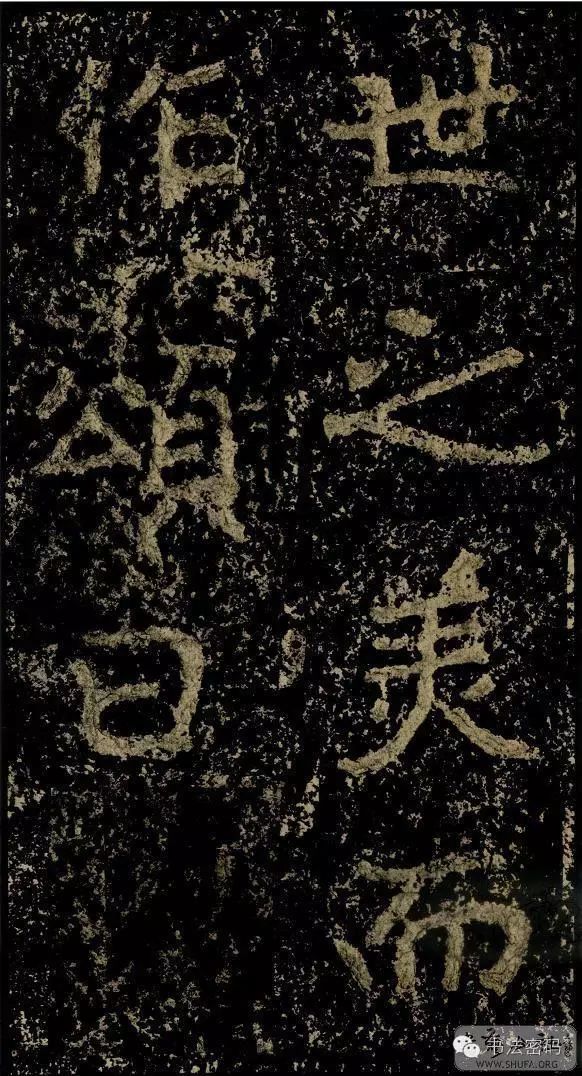 世之美而
作頌曰
书法密码
WWW.SHUFA.ORG